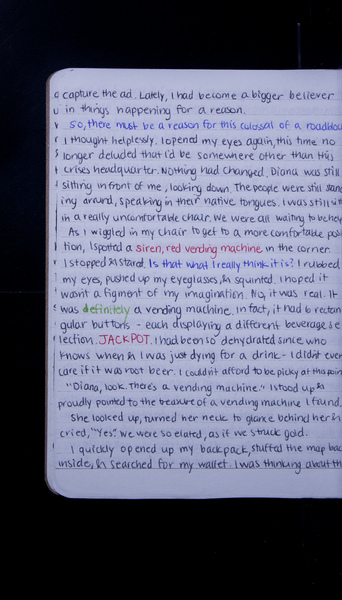 capture the ad. Lately, I had become a bigger believer
in things happening for a reason.
So, there must be a reason for this colossal of a roadblo
I thought helplessly. I opened my eyes again, this time no
longer deluded that I'd be somewhere other than this
crises headquarter. Nothing had changed. Diana was still
sitting in front of me, looking down. The people were still stand
ing around, speaking in their native tongues. I was still sitt
in a really uncomfortable chair. We were all waiting to be
As I wiggled in my chair to get to a more comfortable posi
tion, I spotted a siren, red vending machine in the corner.
I stopped & stared. Is that what I really think it is? I rubbed
my eyes, pushed up my eyeglasses, & squinted. I hoped it
wasn't a figment of my imagination. No, it was real. It
was definitely a vending machine. In fact, it had rectan
gular buttons - each displaying a different beverage se
lection. JACKPOT. I had been so dehydrated since who
knows when & I was just dying for a drink - I didn't even
care if it was root beer. I couldn't afford to be picky at this poin
"Diana, look. there's a vending machine." I stood up &
proudly pointed to the treasure of a vending machine I found.
She looked up, turned her neck to glance behind her &
cried, "Yes". We were so elated, as if we struck gold.
I quickly opened up my backpack, stuffed the map bac
inside, & searched for my wallet. I was thinking about th